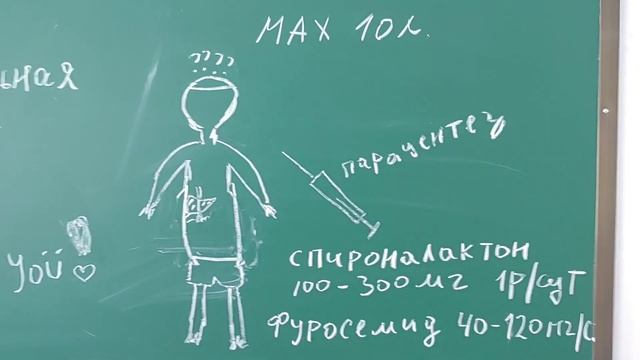 MAX 10л.
ьная
????
парацентез
спироналактон
100-300мг 1р/сут
YOU
Фуросемид 40-120мг/с